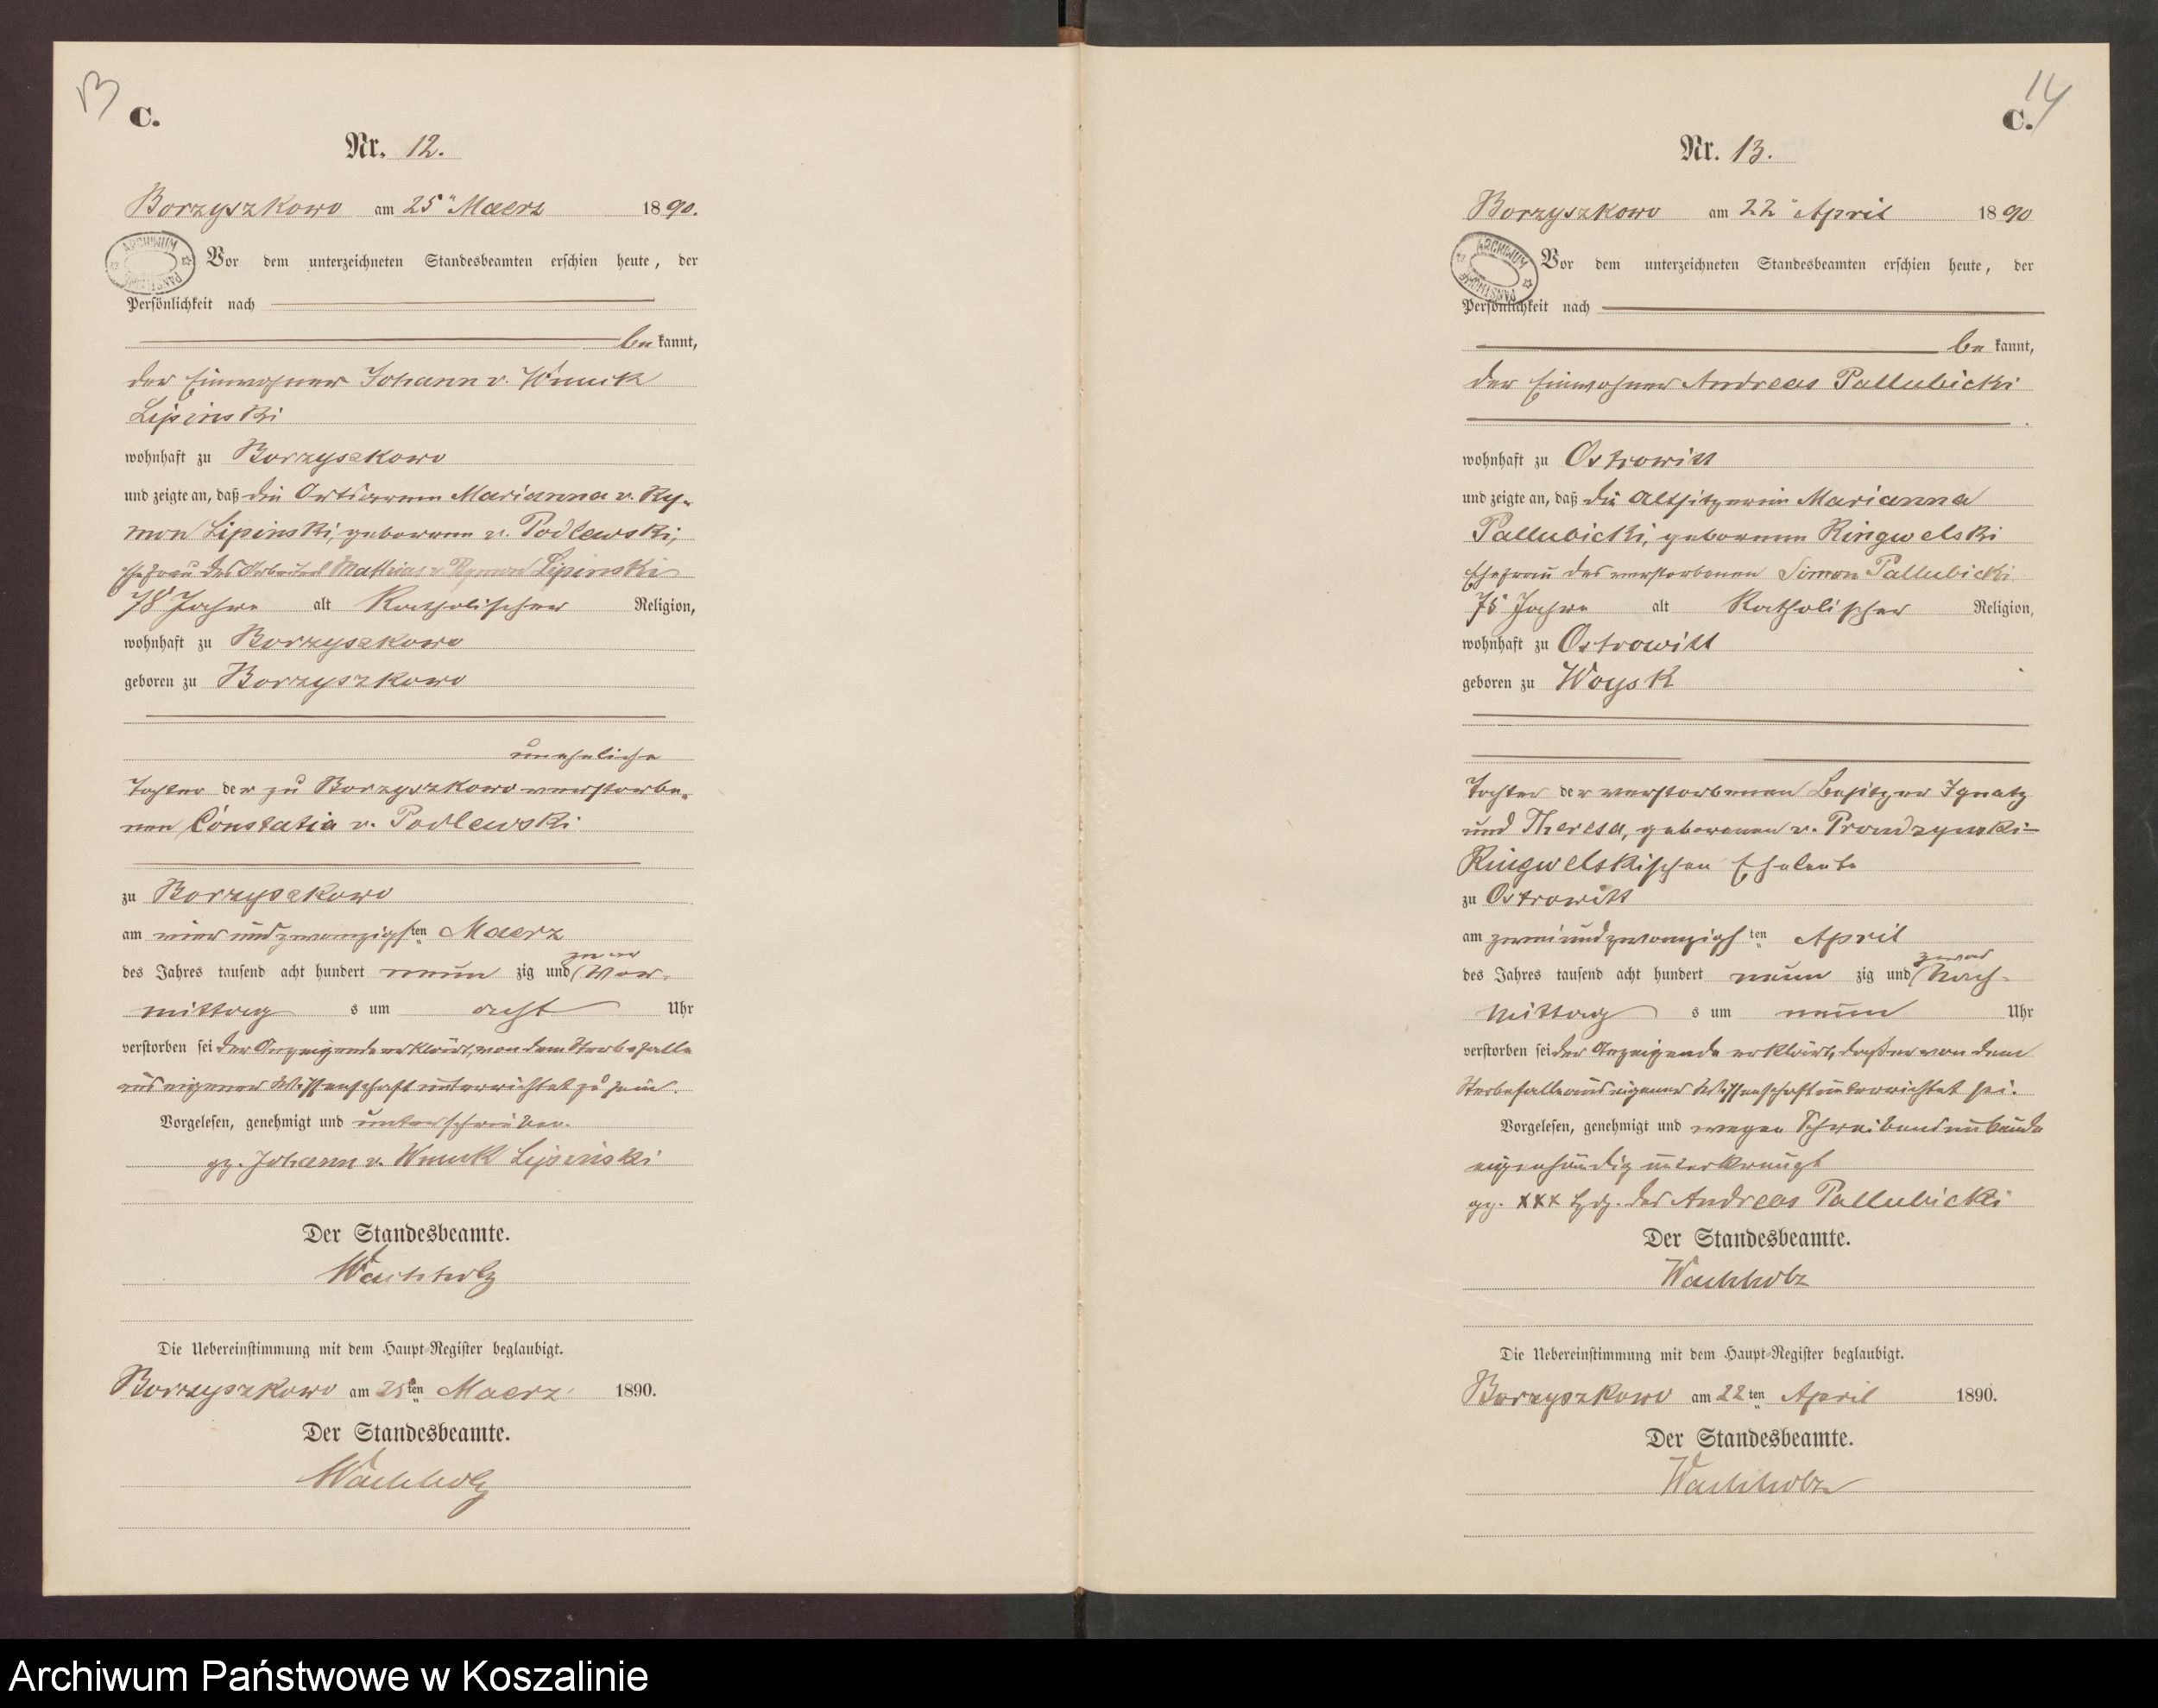 13
C.
Nr. 12.
Borzyszkowo am 25ᵗ Maerz 1890.
ARCHIWUM PAŃSTWOWE
Vor dem unterzeichneten Standesbeamten erschien heute, der
Persönlichkeit nach
be kannt,
der Einwohner Johann v. Wnuck
Lipinski
wohnhaft zu Borzyszkowo
und zeigte an, daß die Ortsarme Marianna v. Ry-
mon Lipinski, geborene v. Podlewski,
Ehefrau des Arbeiters Mathias v Rymon Lipinski
78 Jahre alt Katholischer Religion,
wohnhaft zu Borzyszkowo
geboren zu Borzyszkowo
uneheliche
Tochter der zu Borzyszkowo verstorbe-
nen Constatia v. Podlewski
zu Borzyszkowo
am vier und zwanzigsten Maerz
des Jahres tausend acht hundert neun zig und zwar Vor-
mittag s um acht Uhr
verstorben sei der Anzeigende erklärt, von dem Sterbefalle
aus eigener Wissenschaft unterrichtet zu sein.
Vorgelesen, genehmigt und unterschrieben.
gz. Johann v. Wnuk Lipinski
Der Standesbeamte.
Wachholz
Die Uebereinstimmung mit dem Haupt-Register beglaubigt.
Borzyszkowo am 25ten Maerz 1890.
Der Standesbeamte.
Wachholz
14
C.
Nr. 13.
Borzyszkowo am 22ᵗ April 1890
ARCHIWUM PAŃSTWOWE
Vor dem unterzeichneten Standesbeamten erschien heute, der
Persönlichkeit nach
be kannt,
der Einwohner Andreas Pallubicki
wohnhaft zu Ostrowitt
und zeigte an, daß die Altsitzerin Marianna
Pallubicki, geborenen Ringwelski
Ehefrau des verstorbenen Simon Pallubicki
75 Jahre alt Katholischer Religion,
wohnhaft zu Ostrowitt
geboren zu Woysk
Tochter der verstorbenen Besitzer Ignatz
und Theresa, geborenen v. Prondzynski-
Ringwelskischen Eheleute
zu Ostrowitt
am zweiundzwanzigsten April
des Jahres tausend acht hundert neun zig und zwar Nach-
Mittag s um neun Uhr
verstorben sei der Anzeigende erklärt, daß er von dem
Sterbefalle aus eigener Wissenschaft unterrichtet sei.
Vorgelesen, genehmigt und wegen Schreibensunkunde
eigenhändig unterkreuzt
gz. XXX Hdz. des Andreas Pallubicki
Der Standesbeamte.
Wachholz
Die Uebereinstimmung mit dem Haupt-Register beglaubigt.
Borzyszkowo am 22ten April 1890.
Der Standesbeamte.
Wachholz
Archiwum Państwowe w Koszalinie